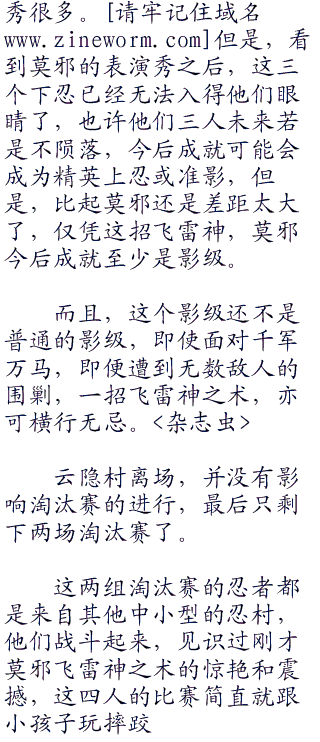 秀很多。[请牢记住域名
www.zineworm.com]但是，看
到莫邪的表演秀之后，这三
个下忍已经无法入得他们眼
睛了，也许他们三人未来若
是不陨落，今后成就可能会
成为精英上忍或准影，但
是，比起莫邪还是差距太大
了，仅凭这招飞雷神，莫邪
今后成就至少是影级。
而且，这个影级还不是
普通的影级，即使面对千军
万马，即便遭到无数敌人的
围剿，一招飞雷神之术，亦
可横行无忌。<杂志虫>
云隐村离场，并没有影
响淘汰赛的进行，最后只剩
下两场淘汰赛了。
这两组淘汰赛的忍者都
是来自其他中小型的忍村，
他们战斗起来，见识过刚才
莫邪飞雷神之术的惊艳和震
撼，这四人的比赛简直就跟
小孩子玩摔跤